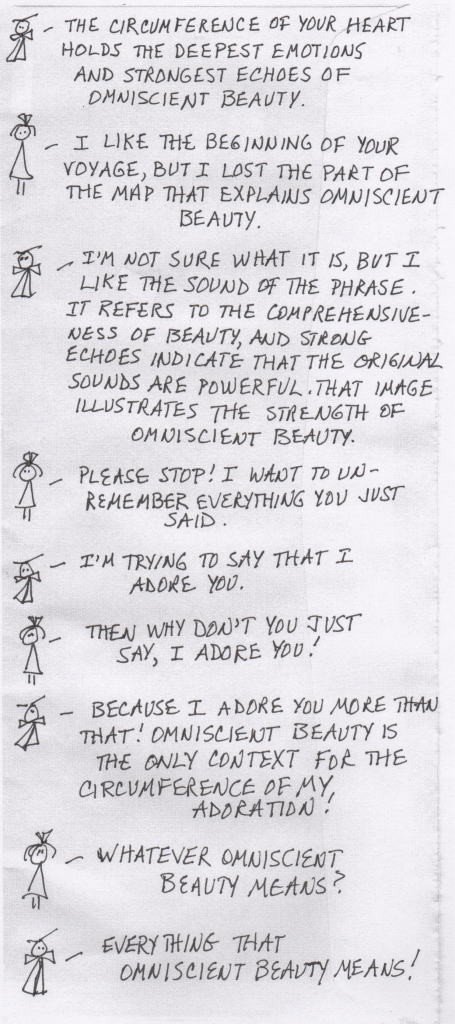 THE CIRCUMFERENCE OF YOUR HEART
HOLDS THE DEEPEST EMOTIONS
AND STRONGEST ECHOES OF
OMNISCIENT BEAUTY.
I LIKE THE BEGINNING OF YOUR
VOYAGE, BUT I LOST THE PART OF
THE MAP THAT EXPLAINS OMNISCIENT
BEAUTY.
I'M NOT SURE WHAT IT IS, BUT I
LIKE THE SOUND OF THE PHRASE.
IT REFERS TO THE COMPREHENSIVE-
NESS OF BEAUTY, AND STRONG
ECHOES INDICATE THAT THE ORIGINAL
SOUNDS ARE POWERFUL. THAT IMAGE
ILLUSTRATES THE STRENGTH OF
OMNISCIENT BEAUTY.
PLEASE STOP! I WANT TO UN-
REMEMBER EVERYTHING YOU JUST
SAID.
I'M TRYING TO SAY THAT I
ADORE YOU.
THEN WHY DON'T YOU JUST
SAY, I ADORE YOU!
BECAUSE I ADORE YOU MORE THAN
THAT! OMNISCIENT BEAUTY IS
THE ONLY CONTEXT FOR THE
CIRCUMFERENCE OF MY
ADORATION!
WHATEVER OMNISCIENT
BEAUTY MEANS?
EVERYTHING THAT
OMNISCIENT BEAUTY MEANS!